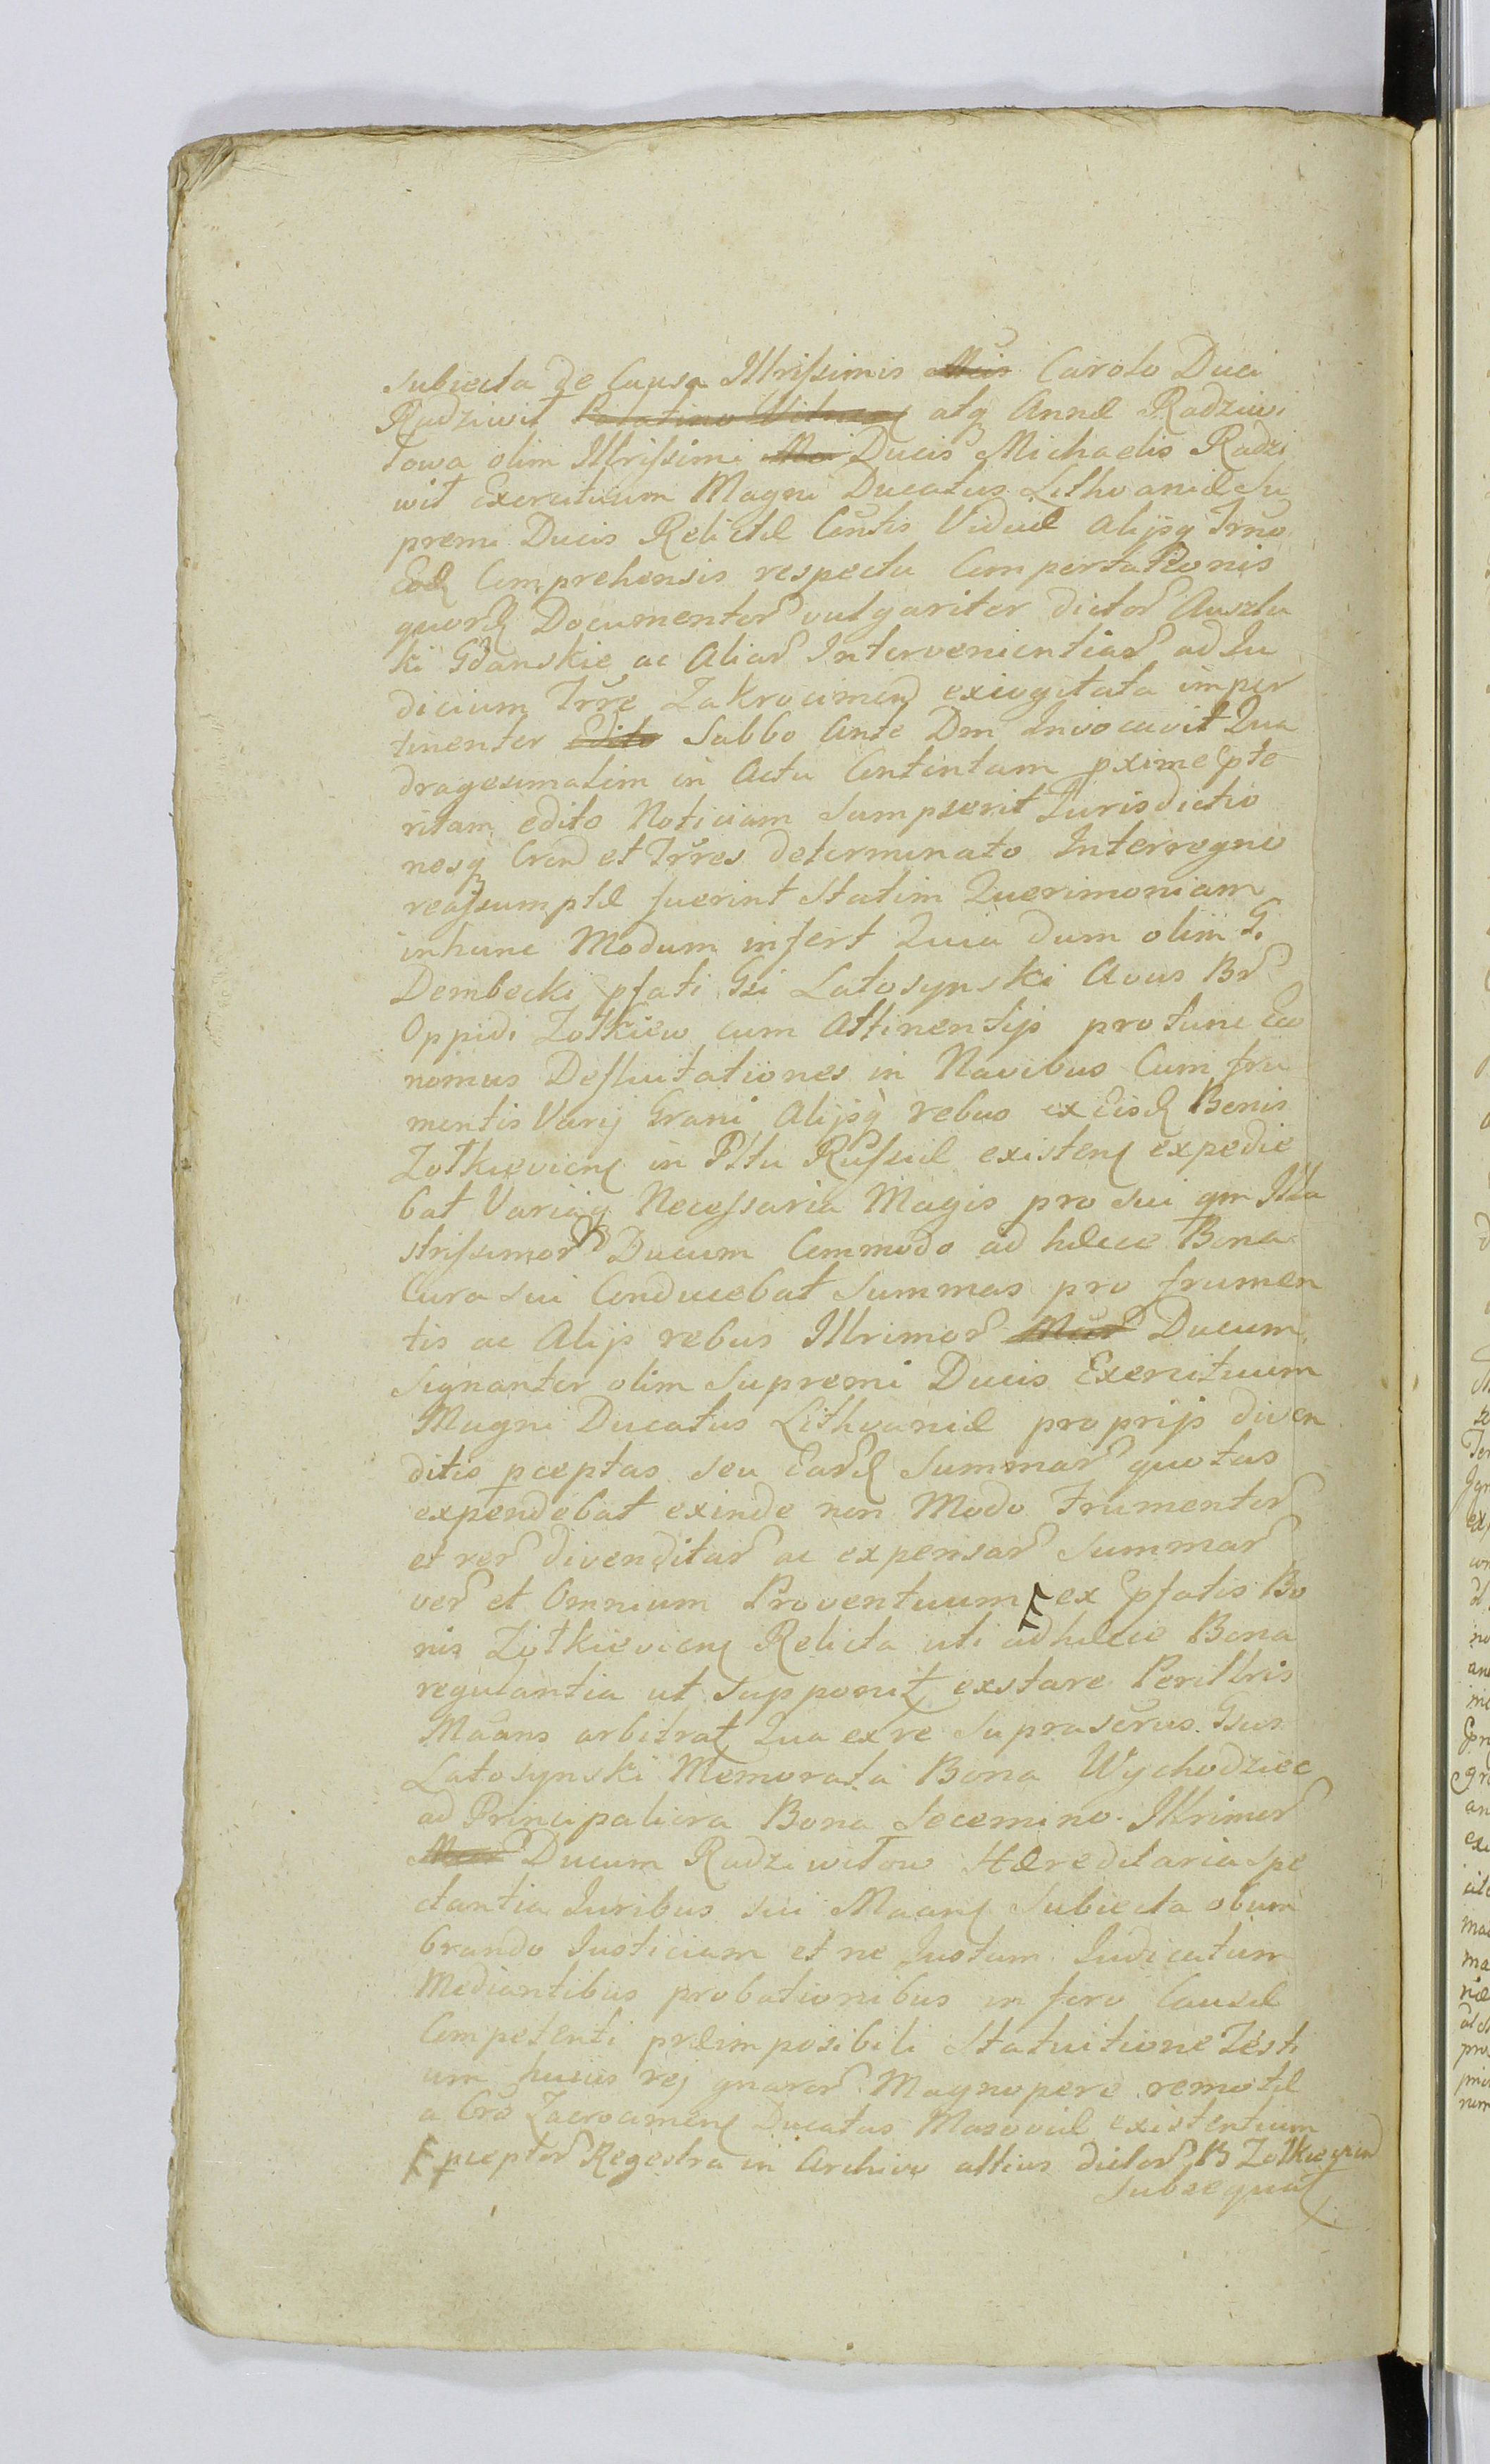 subiecta de Causa Illrissimis Mcis Carolo Duci
Radziwił Palatino Vilnen atq Annæ Radziwi
łowa olim Illrissimi Mci Ducis Michaelis Radzi
wił Exercituum Magni Ducatus Lithvaniæ Su
premi Ducis Relictæ Cntis Viduæ Alijsq Irno
Eod Comprehensis respectu Comportationis
quord Documentor vulgariter dictor Auszlu
ki Gdanskie ac Aliar Intervenientiar ad Iu
dicium Trre Zakrocimen exiogitata imper
tinenter edito Sabbo Ante Dm Invocavit Qua
dragesimalem in Actu Contentam pxime pte
ritam edito Noticiam Sumpserit Iurisdictio
nesq Cren et Trres determinato Interregno
reassumptæ fuerint Statim Querimoniam
inhunc Modum infert Quia dum olim G.
Dembecki pfati Gsi Latosynski Avus Br
Oppidi Zołkiew cum Attinentijs protunc Eco
nomus Defluitationes in Navibus Cum fru
mentis Varij Grani Alijsq rebus ex Eisd Bonis
Zołkievien in Pltu Russiæ existen expedie
bat Variaq Necessaria Magis pro sui qm Illu
strissimor Ducum Commodo ad hæcce Bona
Cura sui Conducebat Summas pro frumen
tis ac Alijs rebus Illrimor Mcor Ducum
Signanter olim Supremi Ducis Exercituum
Magni Ducatus Lithvaniæ proprijs diven
ditis pceptas seu Eard Summar quotas
expendebat exinde non Modo Frumentor
et rer divenditar ac expensar Summar
ver et Omnium Proventuum ex pfatis Bo
nis Zołkievien Relicta uti adhæcce Bona
regulantia ut supponit exstare Perillris
Maans arbitrat Qua exre suprascrus Gsus
Latosynski Memorata Bona Wychodziec
ad Principaliora Bona Secemino Illrimor
Mcor Ducum Radziwiłow Hæreditaria Spe
ctantia Iuribus sui Maan Subiecta obum
brando Iusticiam et ne Iustum Iudicatum
Mediantibus probationibus in foro Causæ
Competenti præimposibili Statuitione Testi
um huius rej gnaror Magnopere remotæ
a Cro Zacrocimen Ducatus Masoviæ existentium
pceptor Regestra in Archivo altius dictor B Zołkievien
Subsequat